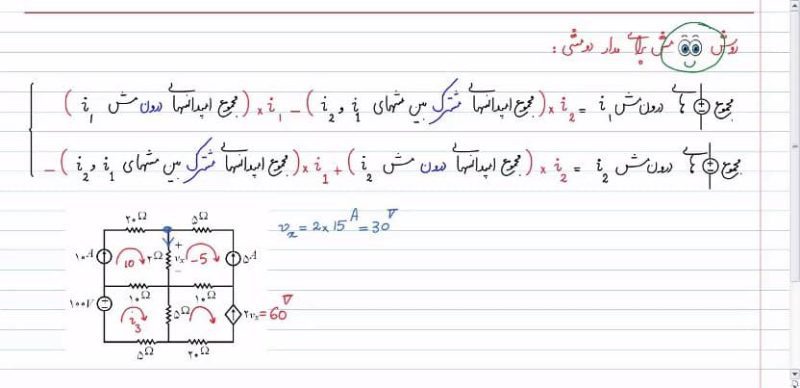 روش مش برای مدار دو مشی :
مجموع ها درون مش i₁ = (مجموع امپدانسهای درون مش i₁) × i₁ − (مجموع امپدانسهای مشترک بین مشهای i₁ و i₂) × i₂
مجموع ها درون مش i₂ = −(مجموع امپدانسهای مشترک بین مشهای i₁ و i₂) × i₁ + (مجموع امپدانسهای درون مش i₂) × i₂
۲۰Ω ۵Ω
vₓ = 2 × 15 A = 30 V
۱۰A 10 ۲Ω + vₓ − -5 ۵A
۱۰Ω ۱۰Ω
۱۰۰V i₃ ۵Ω ۲vₓ = 60 V
۵Ω ۲۰Ω